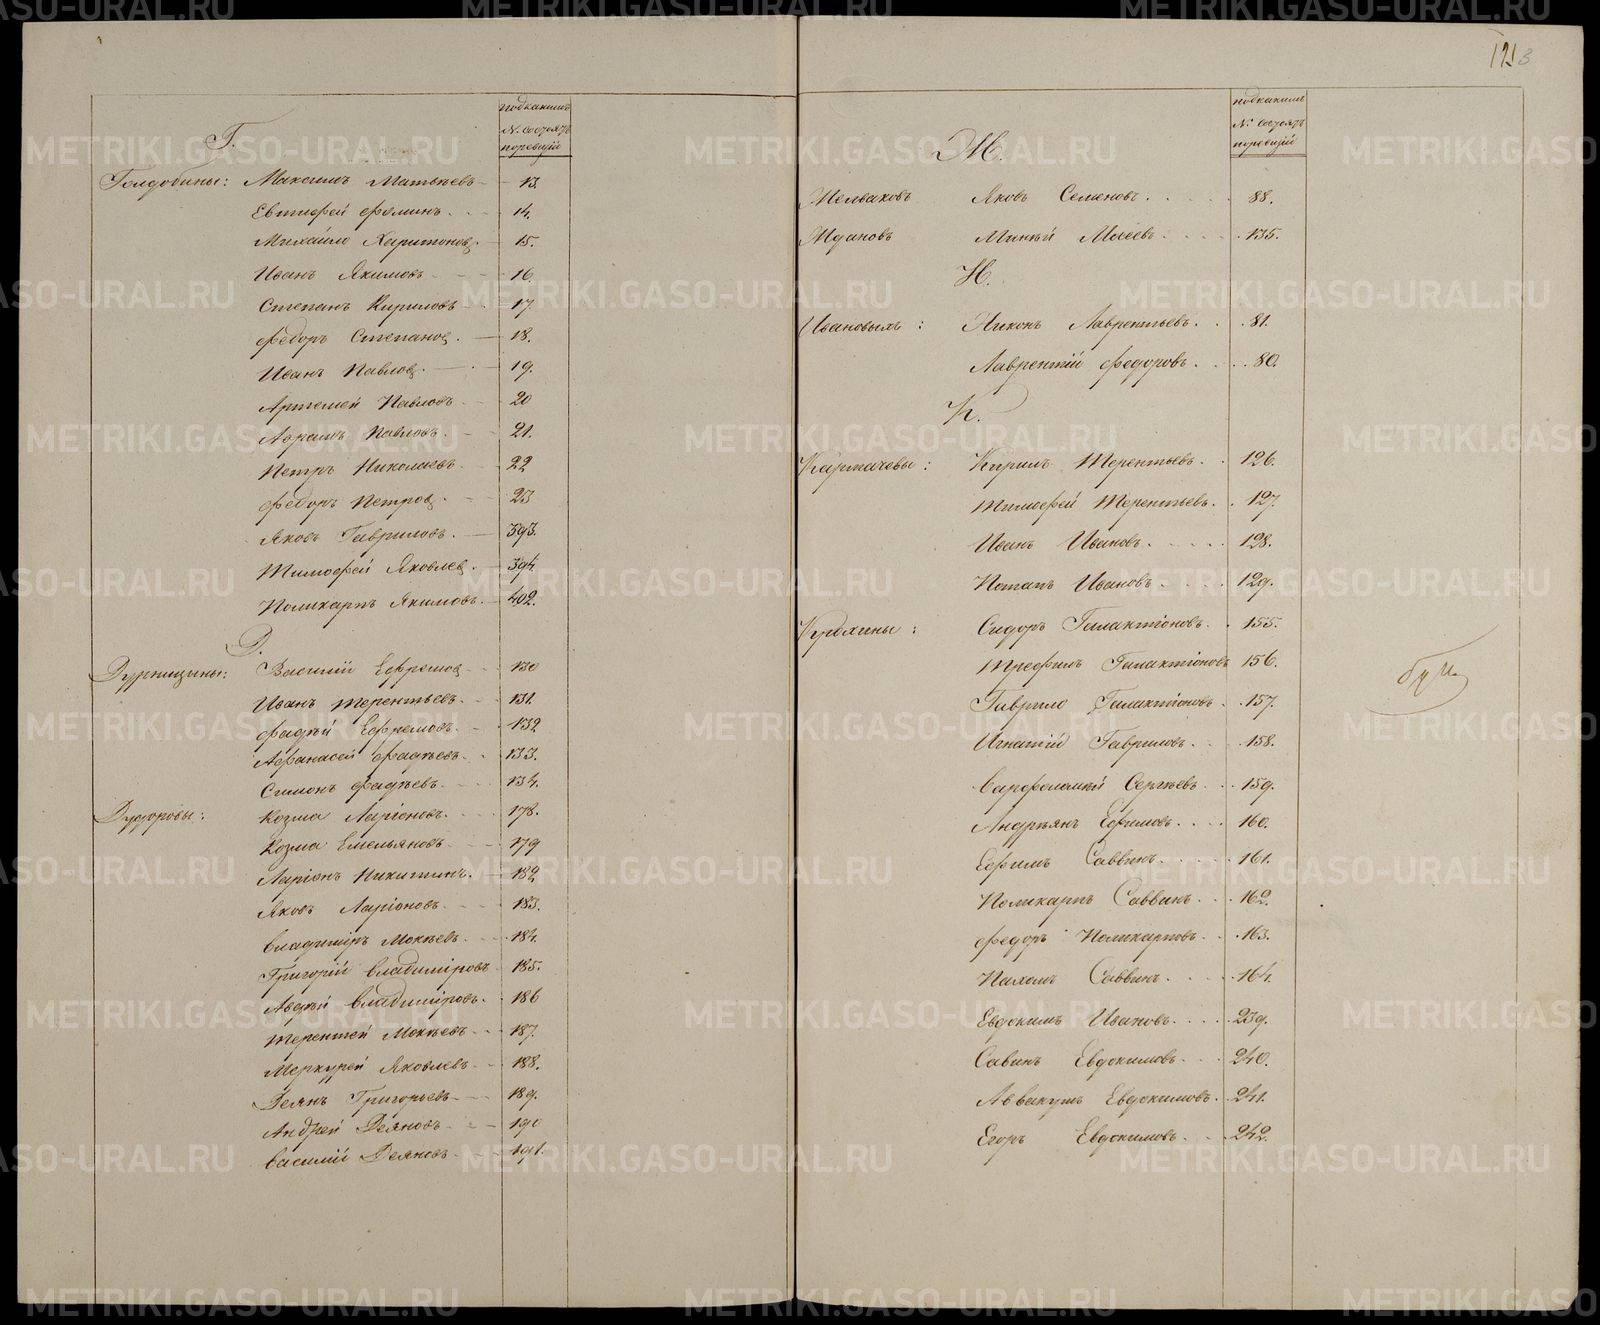 Г.
подкакимъ
№ состоятъ
поревизіи
Голдобины: Максимъ Матвѣевъ 13.
Евтифей Фоминъ 14.
Михайло Харитоновъ 15.
Иванъ Якимовъ 16.
Степанъ Кириловъ 17
Федоръ Степановъ 18.
Иванъ Павловъ 19.
Артемей Павловъ 20
Абрамъ Павловъ 21.
Петръ Николаевъ 22
Федоръ Петровъ 23
Яковъ Гавриловъ 393.
Тимофей Яковлевъ 394.
Поликарпъ Якимовъ 402.
Д.
Дурницыны: Василій Ефремовъ 130
Иванъ Терентьевъ 131.
Фадѣй Ефремовъ 132
Афанасей Фадѣевъ 133.
Симонъ Фадѣевъ 134.
Дудоровы: Козма Ларіоновъ 178.
Козма Емельяновъ 179
Ларіонъ Никитинъ 182
Яковъ Ларіоновъ 183.
Владиміръ Мокѣевъ 184.
Григорій Владиміровъ 185.
Авдѣй Владиміровъ 186
Терентей Мокѣевъ 187.
Меркурей Яковлевъ 188.
Деянъ Григорьевъ 189.
Андрей Деяновъ 190
Василій Деяновъ 191.
1213
подкакимъ
№ состоятъ
поревизіи
Ж.
Желваковъ Яковъ Семеновъ 88.
Ждановъ Минѣй 135.
И.
Ивановыхъ: Никонъ Лаврентьевъ 81.
Лаврентій Федоровъ 80.
К.
Карпачевы: Кирилъ Терентьевъ 126.
Тимофей Терентьевъ 127.
Иванъ Ивановъ 128.
Потапъ Ивановъ 129.
Сидоръ Галактіоновъ 155.
Трефилъ Галактіоновъ 156.
Гаврило Галактіоновъ 157.
Игнатій Гавриловъ 158.
Варфоломей Сергѣевъ 159.
Андреянъ Ефимовъ 160.
Ефимъ Саввинъ 161.
Поликарпъ Саввинъ 162.
Федоръ Поликарповъ 163.
Пахомъ Саввинъ 164.
Евдокимъ Ивановъ 239.
Савинъ Евдокимовъ 240.
Аввакумъ Евдокимовъ 241.
Егоръ Евдокимовъ 242.
METRIKI.GASO-URAL.RU